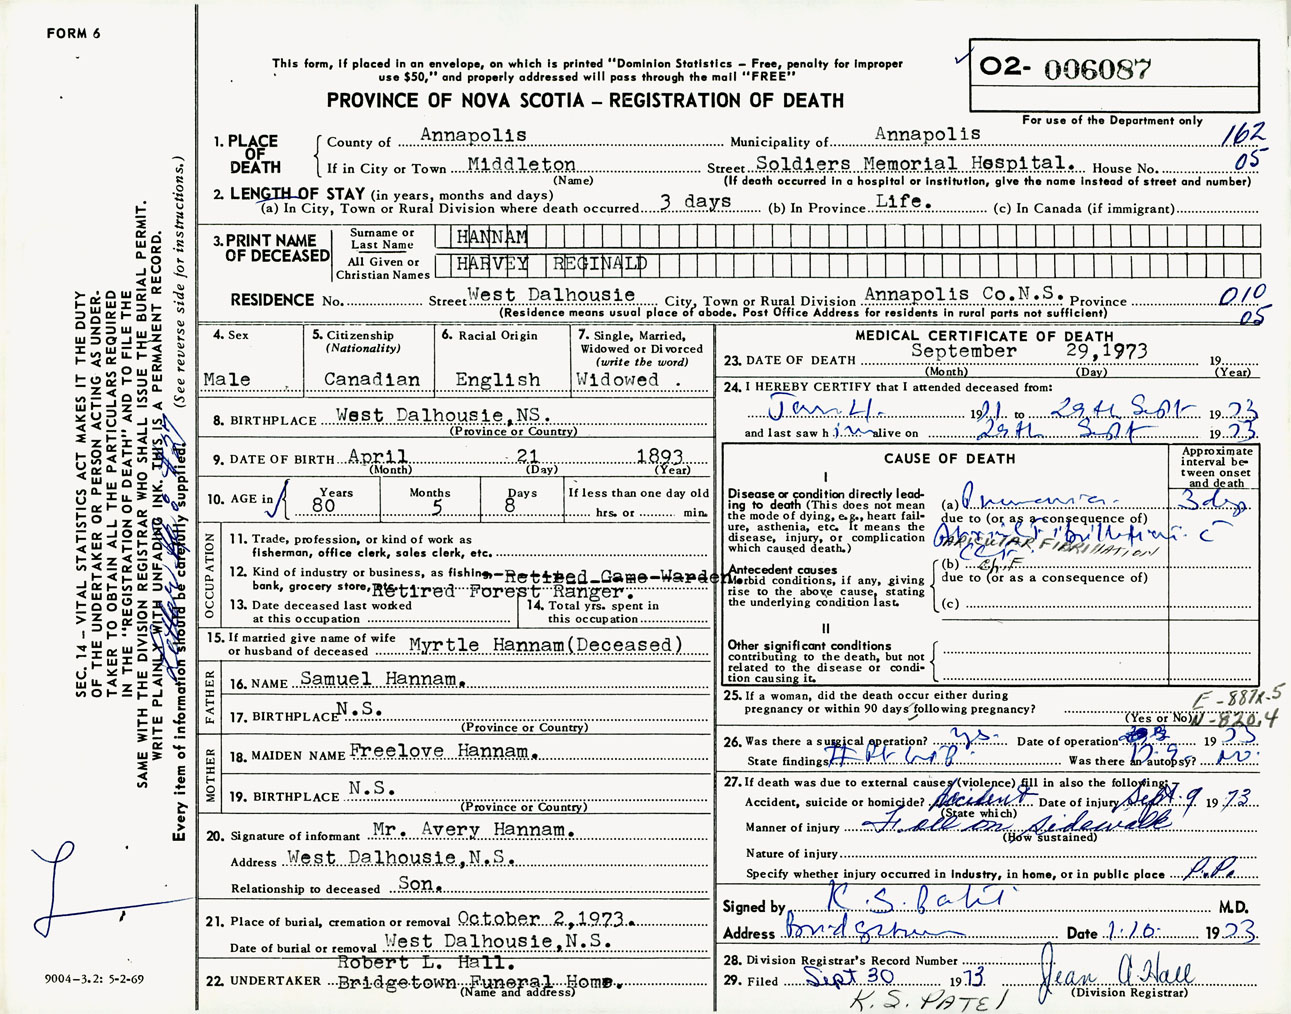 FORM 6
This form, if placed in an envelope, on which is printed "Dominion Statistics – Free, penalty for improper
use $50," and properly addressed will pass through the mail "FREE"
PROVINCE OF NOVA SCOTIA – REGISTRATION OF DEATH
02- 006087
For use of the Department only
1. PLACE OF DEATH
County of Annapolis Municipality of Annapolis 162
If in City or Town Middleton Street Soldiers Memorial Hospital. House No. 05
(Name) (If death occurred in a hospital or institution, give the name instead of street and number)
2. LENGTH OF STAY (in years, months and days)
(a) In City, Town or Rural Division where death occurred 3 days (b) In Province Life. (c) In Canada (if immigrant)
3. PRINT NAME OF DECEASED
Surname or Last Name HANNAM
All Given or Christian Names HARVEY REGINALD
RESIDENCE No. Street West Dalhousie City, Town or Rural Division Annapolis Co.N.S. Province 010
(Residence means usual place of abode. Post Office Address for residents in rural parts not sufficient) 05
4. Sex
Male
5. Citizenship
(Nationality)
Canadian
6. Racial Origin
English
7. Single, Married,
Widowed or Divorced
(write the word)
Widowed .
8. BIRTHPLACE West Dalhousie,NS.
(Province or Country)
9. DATE OF BIRTH April 21 1893
(Month) (Day) (Year)
10. AGE in Years Months Days If less than one day old
80 5 8 hrs. or min.
OCCUPATION
11. Trade, profession, or kind of work as
fisherman, office clerk, sales clerk, etc.
12. Kind of industry or business, as fishing Retired Game Warden
bank, grocery store, Retired Forest Ranger.
13. Date deceased last worked
at this occupation
14. Total yrs. spent in
this occupation
15. If married give name of wife
or husband of deceased Myrtle Hannam(Deceased)
FATHER
16. NAME Samuel Hannam.
17. BIRTHPLACE N.S.
(Province or Country)
MOTHER
18. MAIDEN NAME Freelove Hannam.
19. BIRTHPLACE N.S.
(Province or Country)
20. Signature of informant Mr. Avery Hannam.
Address West Dalhousie,N.S.
Relationship to deceased Son.
21. Place of burial, cremation or removal October 2,1973.
Date of burial or removal West Dalhousie,N.S.
Robert L. Hall.
22. UNDERTAKER Bridgetown Funeral Home.
(Name and address)
MEDICAL CERTIFICATE OF DEATH
23. DATE OF DEATH September 29,1973 19
(Month) (Day) (Year)
24. I HEREBY CERTIFY that I attended deceased from:
19 71 to 29th Sept 19 73
and last saw h im alive on 29th Sept 19 73
CAUSE OF DEATH
Approximate
interval be-
tween onset
and death
I
Disease or condition directly lead-
ing to death (This does not mean
the mode of dying, e.g., heart fail-
ure, asthenia, etc. It means the
disease, injury, or complication
which caused death.)
(a) Pneumonia 3 days
due to (or as a consequence of)
AURICULAR FIBRILLATION
Antecedent causes
Morbid conditions, if any, giving
rise to the above cause, stating
the underlying condition last.
(b)
due to (or as a consequence of)
(c)
II
Other significant conditions
contributing to the death, but not
related to the disease or condi-
tion causing it.
25. If a woman, did the death occur either during
pregnancy or within 90 days following pregnancy?
(Yes or No)
E-887X-5
N-820.4
26. Was there a surgical operation? yes. Date of operation 19 73
State findings Was there an autopsy? No.
27. If death was due to external causes (violence) fill in also the following:
Accident, suicide or homicide? Accident Date of injury Sept. 9 19 73
(State which)
Manner of injury Fall on Sidewalk
(How sustained)
Nature of injury
Specify whether injury occurred in industry, in home, or in public place P.P.
Signed by K. S. Patel M.D.
Address Bridgetown Date 1.10. 19 73
28. Division Registrar's Record Number
29. Filed Sept 30 19 73 Jean A Hall
(Division Registrar)
K. S. PATEL
SEC. 14 – VITAL STATISTICS ACT MAKES IT THE DUTY
OF THE UNDERTAKER OR PERSON ACTING AS UNDER-
TAKER TO OBTAIN ALL THE PARTICULARS REQUIRED
IN THE "REGISTRATION OF DEATH" AND TO FILE THE
SAME WITH THE DIVISION REGISTRAR WHO SHALL ISSUE THE BURIAL PERMIT.
WRITE PLAINLY WITH UNFADING INK. THIS IS A PERMANENT RECORD.
Every item of information should be carefully supplied. (See reverse side for instructions.)
9004-3.2: 5-2-69